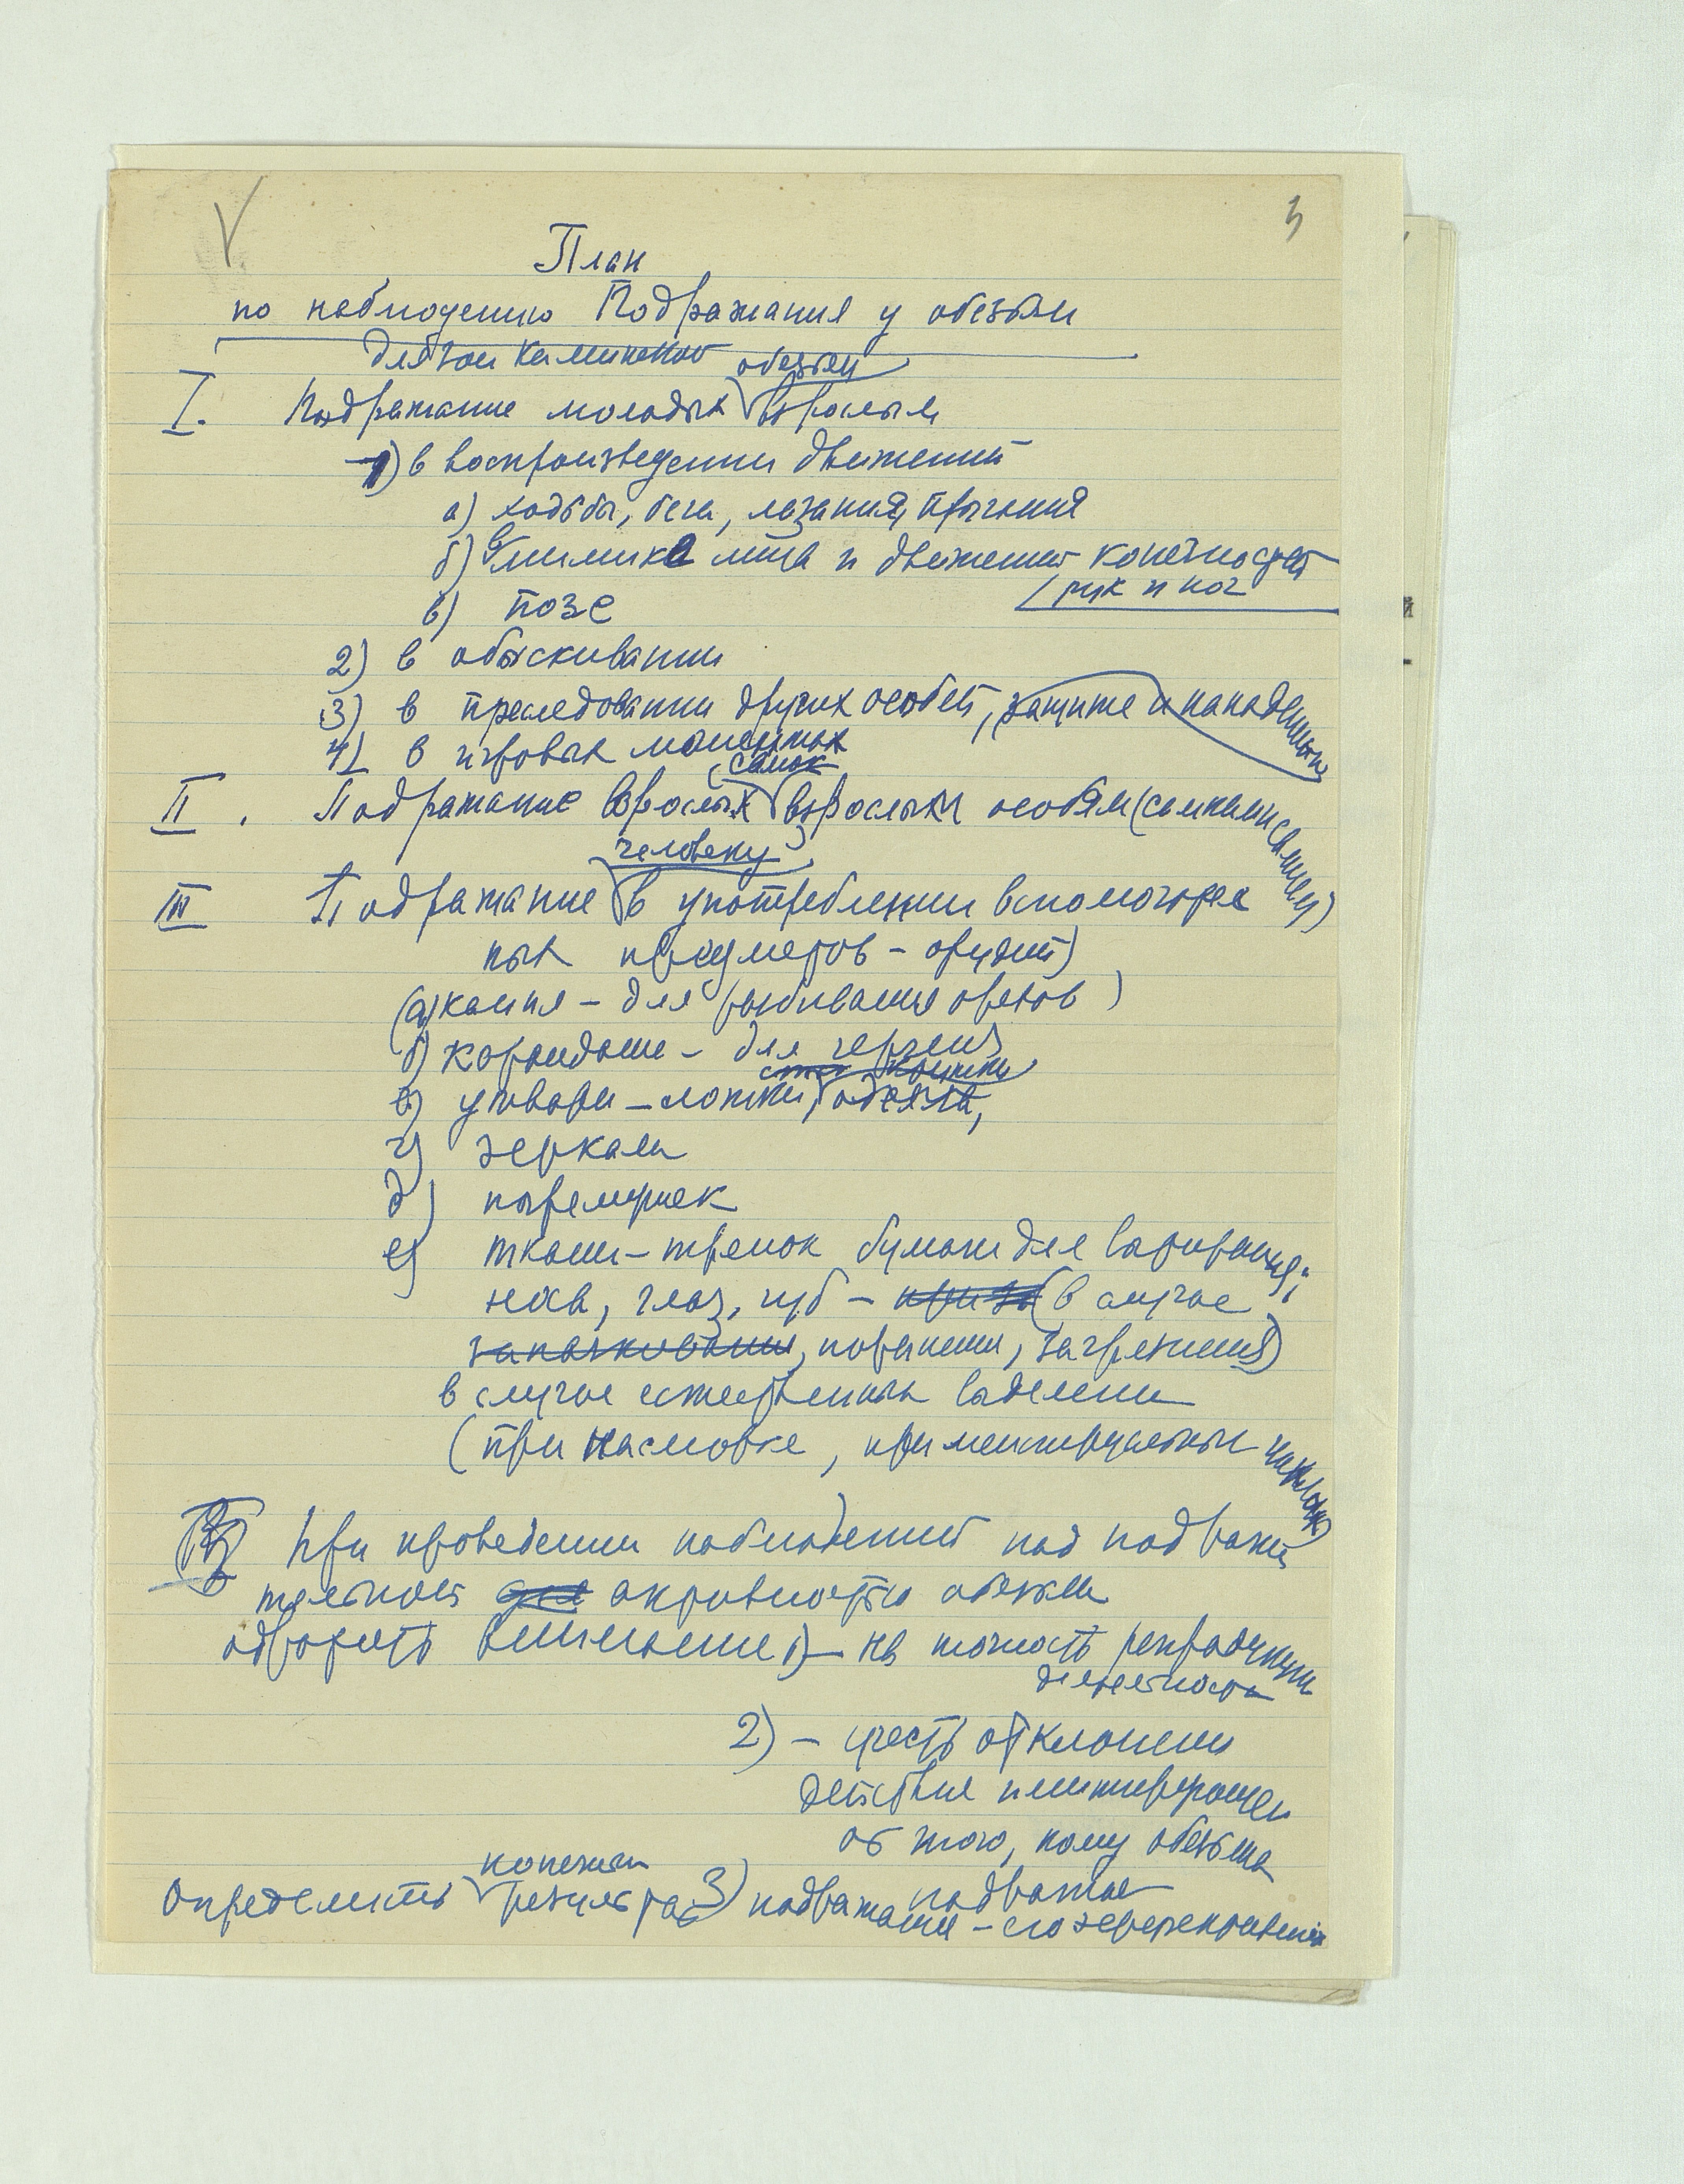 3
План
по наблюдению Подражания у обезьян
обезьян
I. Подражание молодых взрослым
1) в воспроизведении движений
а) ходьбы, бега, лазания, прыгания
б) в мимике лица и движений конечностей
(рук и ног
в) позе
2) в обыскивании
3) в преследовании других особей, защите и нападении
4) в игровых моментах
самок
II. Подражание взрослых взрослым особям (самками самцам)
человеку
III Подражание в употреблении вспомогатель
ных предметов – орудий)
(а) камня – для разбивания орехов)
б) карандаше – для черчения
в) утвари – ложки, одеяла,
г) зеркала
д) погремушек
е) ткани – тряпок бумаги для вытирания;
носа, глаз, губ – (в случае
запачкования, поранения, загрязнения)
в случае естественных выделений
(при насморке, при менструальных
IV При проведении наблюдений над подражат
тельной активностью обезьян
обратить внимание 1) – на точность репродукции
деятельности
2) – учесть отклонения
действия имитирующей
от того, кому обезьяна
подражает
конечный
Определить результат 3) подражания – его эффективность